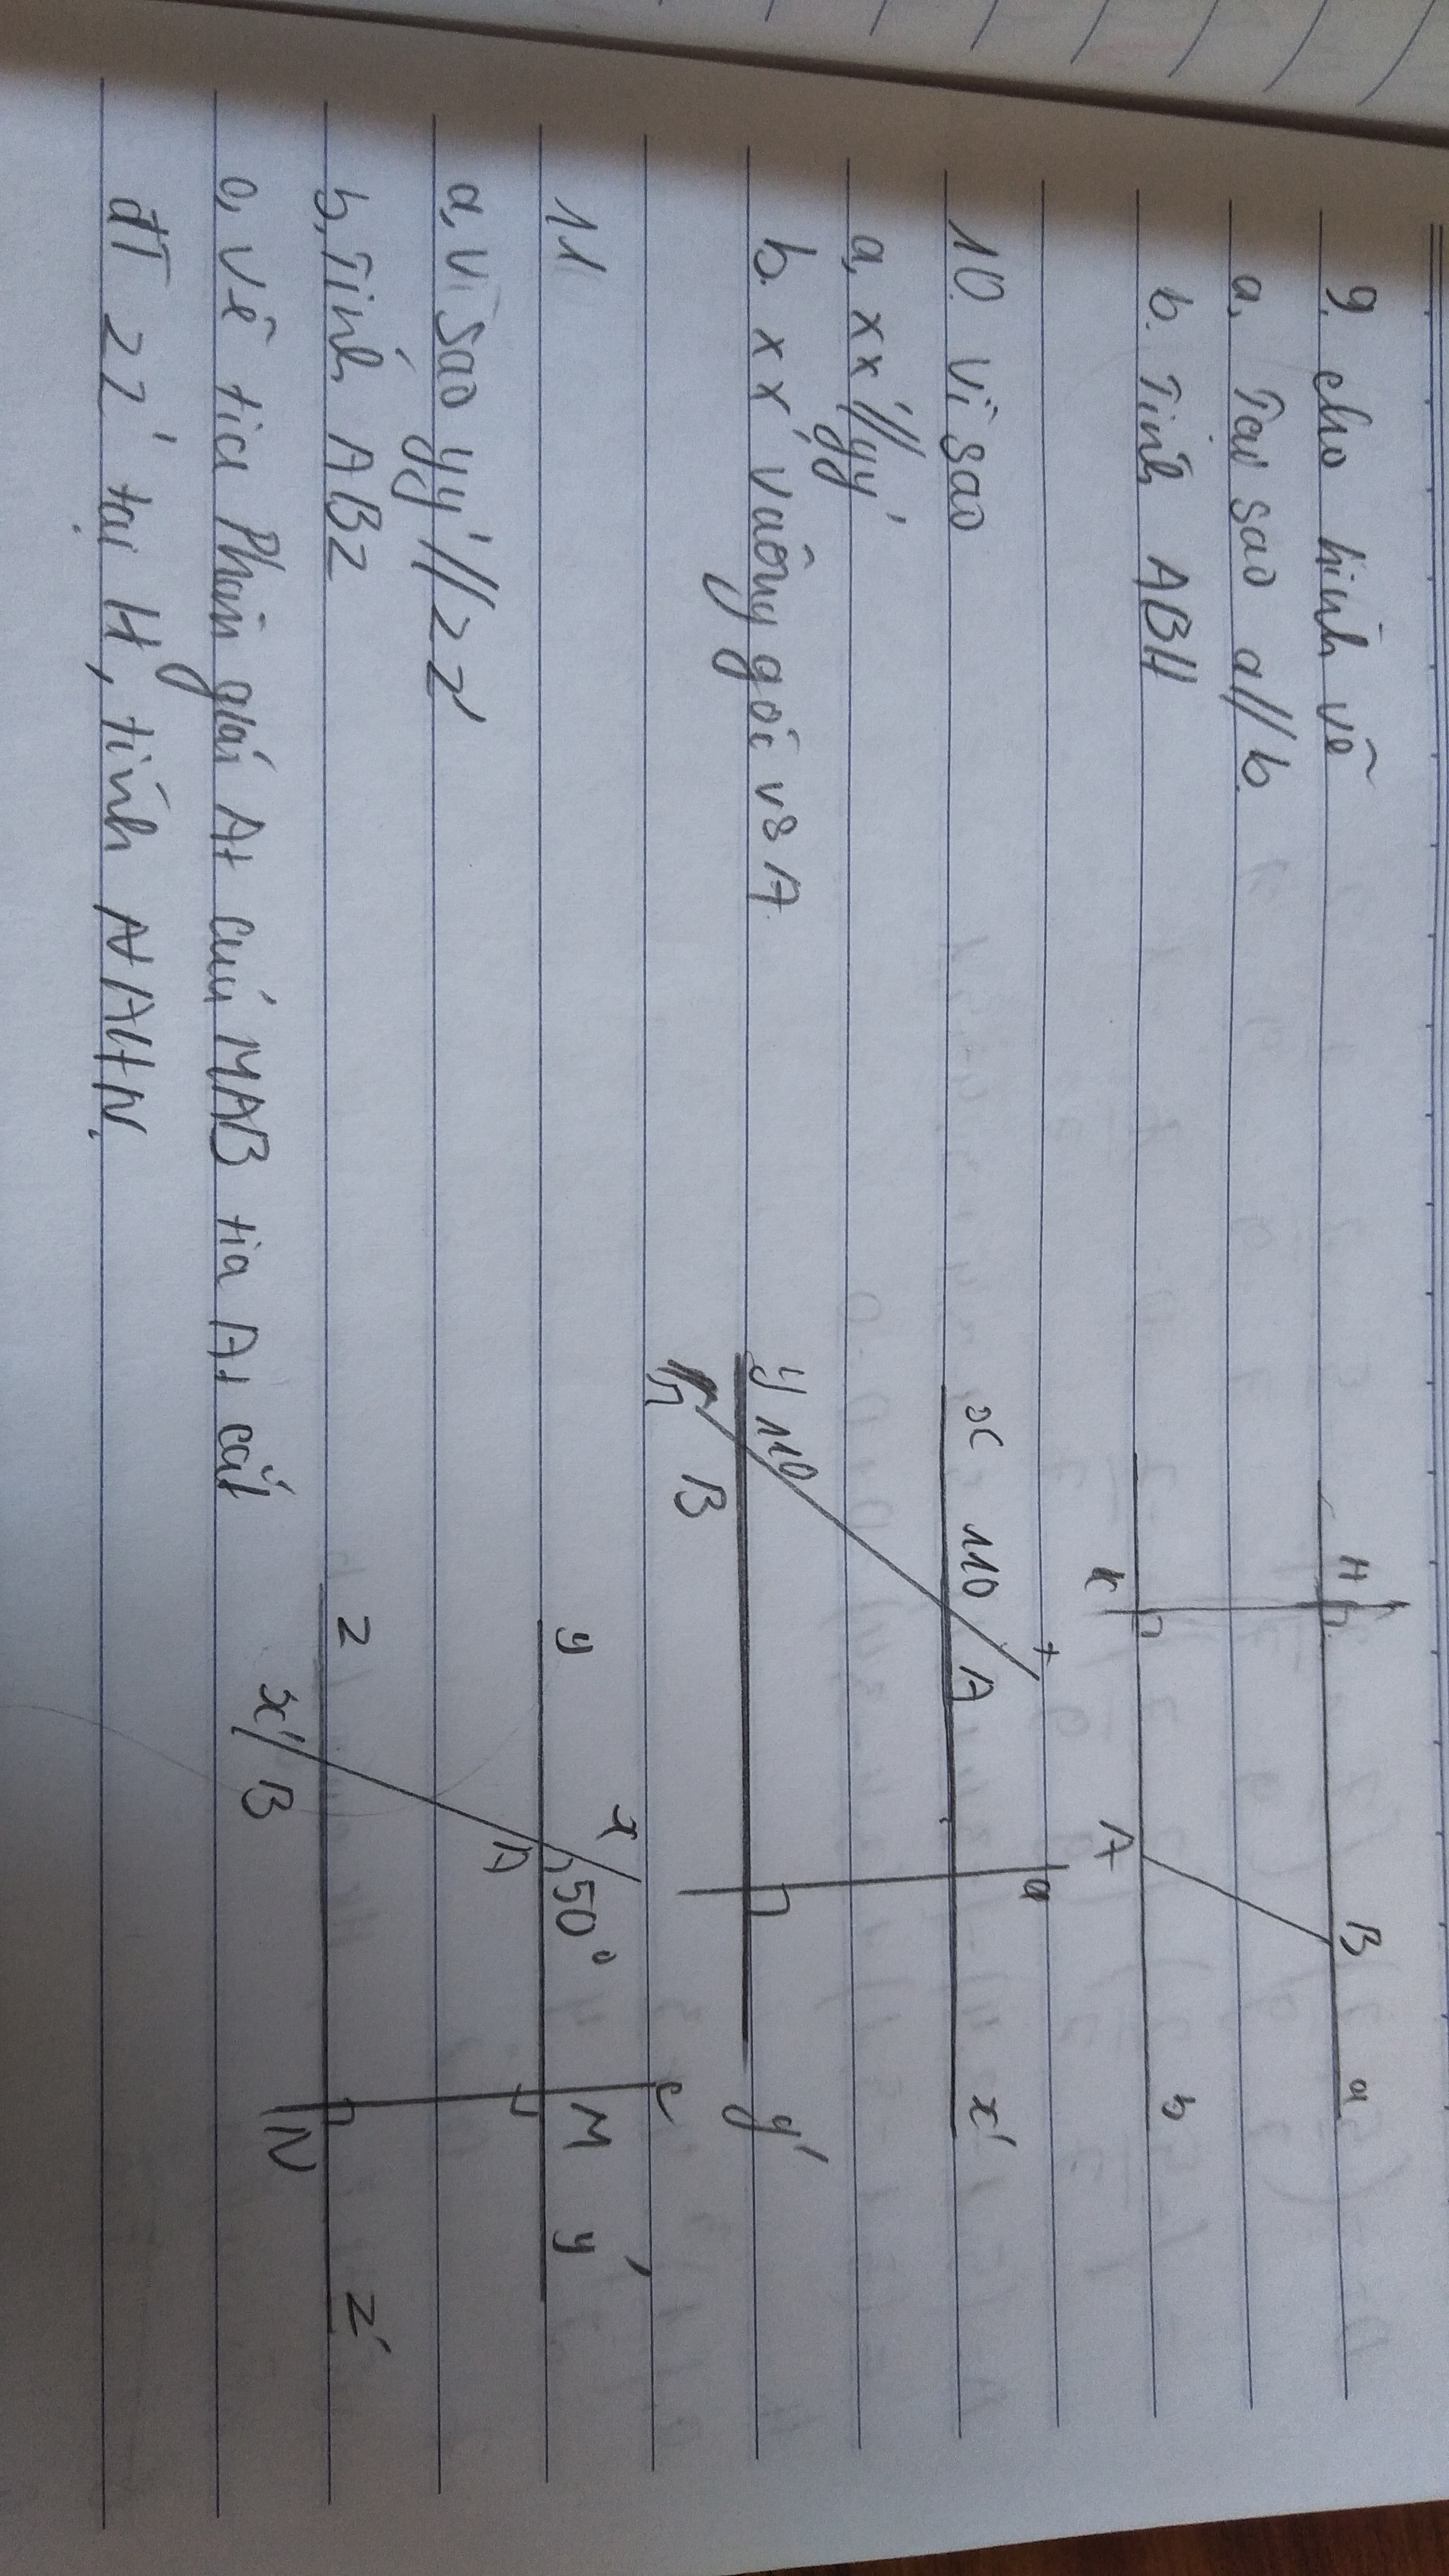 9. cho hình vẽ
a, Tại sao a//b.
b. Tính ABH
H B a
K A b
10. Vì sao
a, xx'//yy'
b. xx' vuông gói vs A.
t a
x 110 A x'
y 110 B y'
11
a, Vì sao yy'//zz'
b, Tính ABz
o, vẽ tia Phân giái At cuủ MAB tia At cắt
đT zz' tại H, tính AHN.
x c
y A 50° M y'
z B N z'
x'